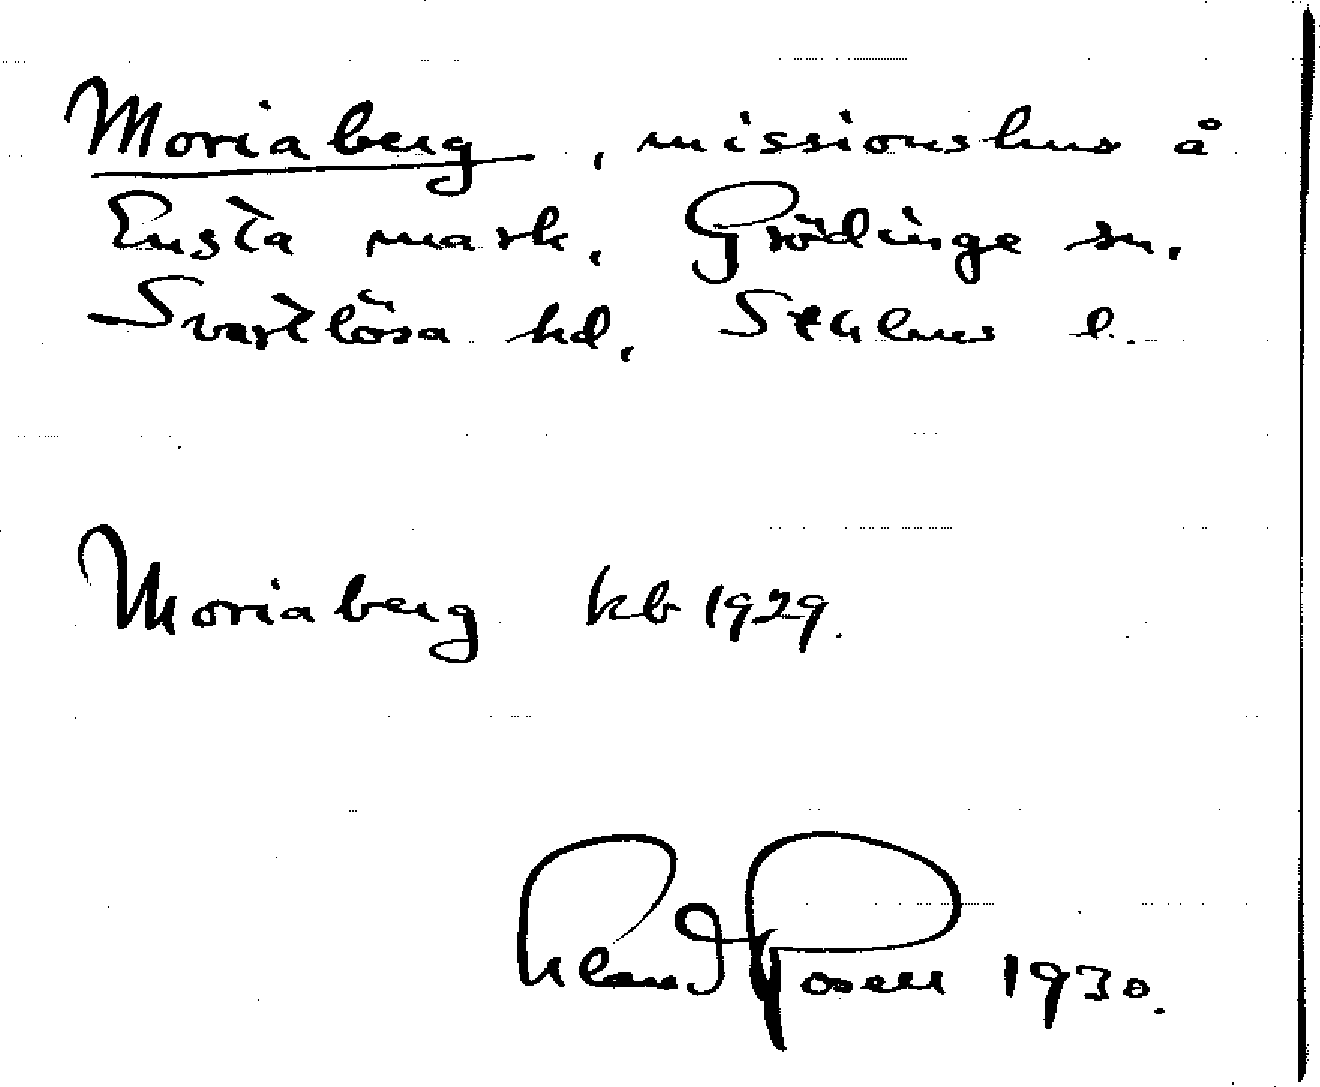 Moriaberg, missionshus å
Ensta mark, Grödinge sn,
Svartlösa hd, Sthlms l.
Moriaberg kb 1929.
1930.